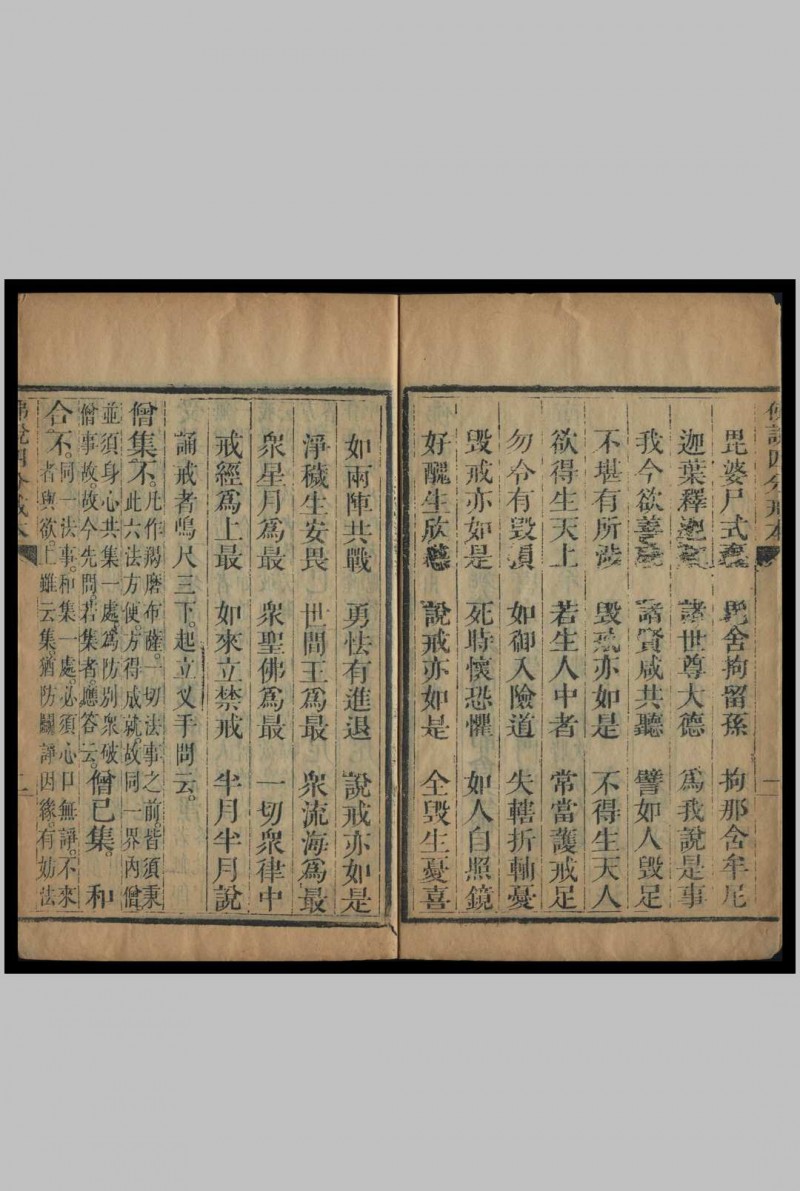 毘婆尸式棄　毘舍拘留孫　拘那舍牟尼
迦葉釋迦文　諸世尊大德　爲我說是事
我今欲善說　諸賢咸共聽　譬如人毀足
不堪有所涉　毀戒亦如是　不得生天人
欲得生天上　若生人中者　常當護戒足
勿令有毀損　如御入險道　失轄折軸憂
毀戒亦如是　死時懷恐懼　如人自照鏡
好醜生欣慼　說戒亦如是　全毀生憂喜
如兩陣共戰　勇怯有進退　說戒亦如是
淨穢生安畏　世間王爲最　衆流海爲最
衆星月爲最　衆聖佛爲最　一切衆律中
戒經爲上最　如來立禁戒　半月半月說
誦戒者鳴尺三下。起立叉手問云。
僧集不。凡作羯磨布薩。一切法事之前。皆須秉
此六法方便。方得成就。故同一界內僧。
並須身心共集一處。爲防別衆破
僧事故。故今先問。若集者。應答云。僧已集。　和
合不。同一法事。和集一處。必須心口無諍。不來
者與欲。上雖云集。猶防鬬諍因緣。有妨法
佛說四分戒本　二